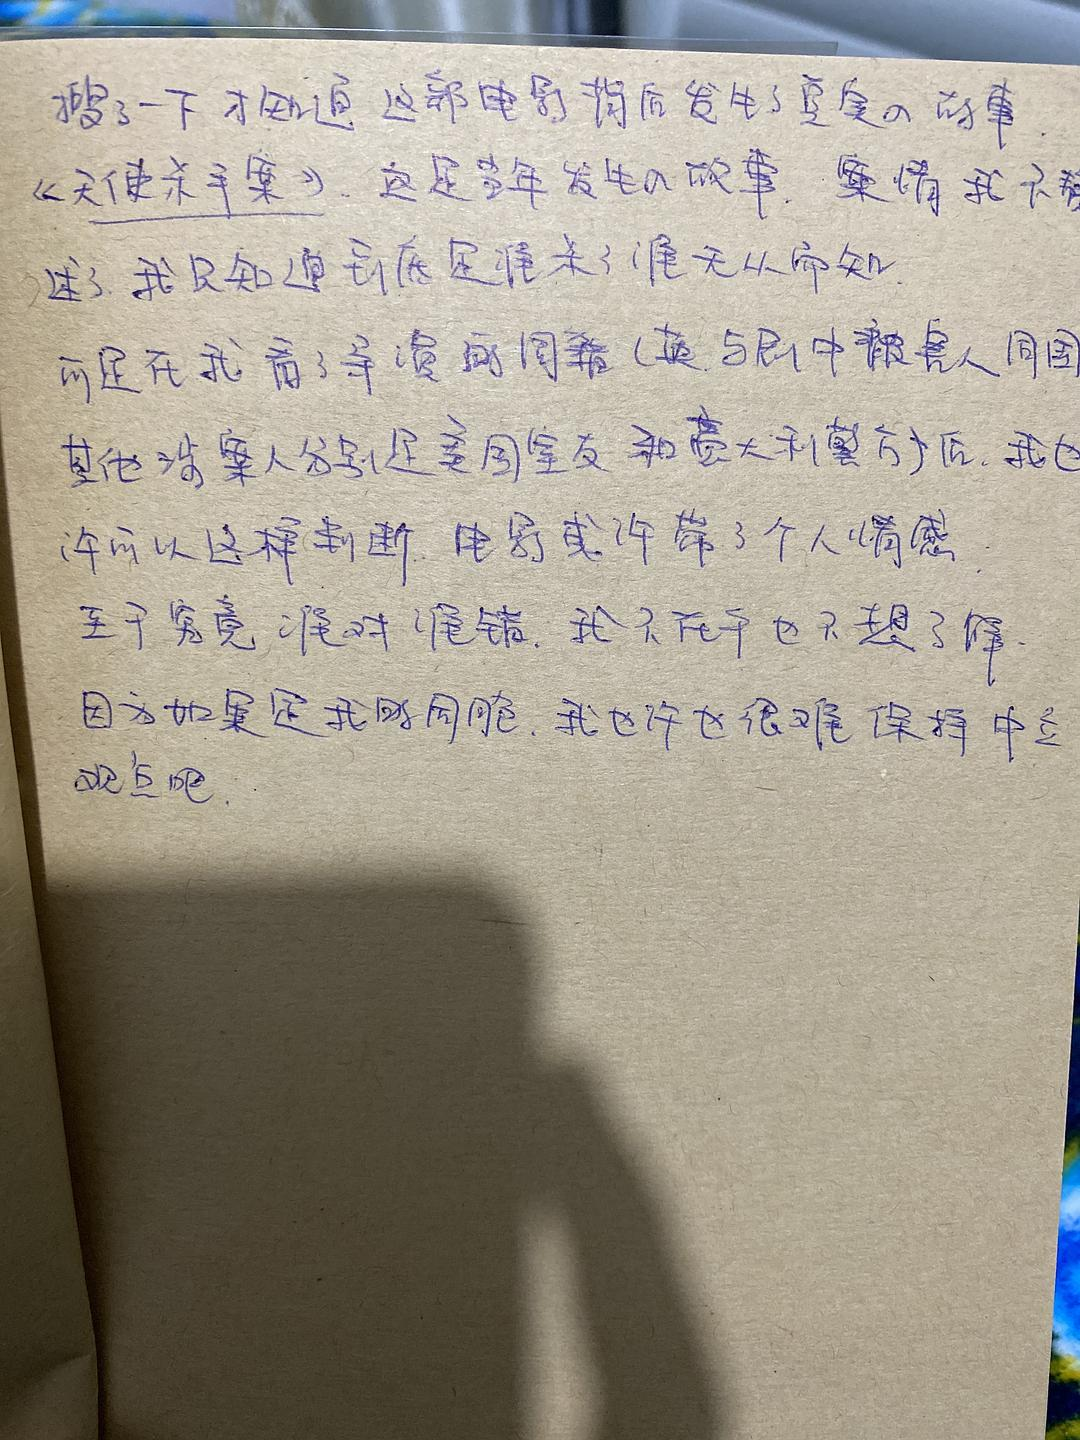 搜了一下才知道 这部电影背后发生了真实の故事.
《天使杀手案》. 这是当年发生の故事. 案情我不赘
述了. 我只知道到底是谁杀了谁无从而知.
可是在我看了导演的国籍(英. 与剧中被害人同国
其他涉案人分别是美国室友和意大利警方)后. 我也
许可以这样判断. 电影或许带了个人情感.
至于究竟谁对谁错. 我不在乎也不想了解.
因为如果是我的同胞. 我也许也很难保持中立
观点吧.